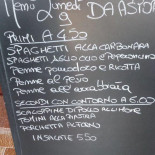 Menù Lunedì
9 DA ASTOR
PRIMI A 4.50
SPAGHETTI ALLA CARBONARA
SPAGHETTI AGLIO OLIO E PEPERONCINO
PENNE POMODORO E RICOTTA
PENNE AL PESTO
PENNE ALL'ARRABBIATA
SECONDI CON CONTORNO A 6.00
SCALOPPINE DI POLLO AL LIMONE
TOMINI ALLA PIASTRA
PORCHETTA AL FORNO
INSALATE 5.50